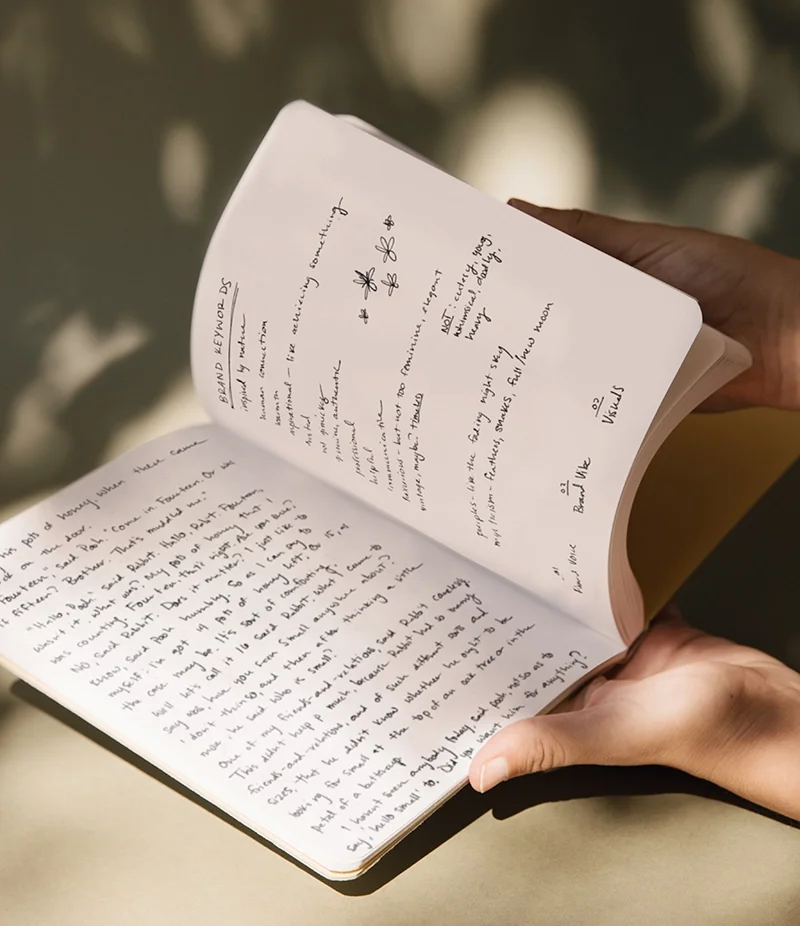 BRAND KEYWORDS
inspired by nature
human connection
warmth
aspirational - like achieving something
genuine, authentic
professional
helpful
communicative
luxurious - but not too feminine, elegant
vintage, maybe? timeless
NOT: cutesy, young,
whimsical, deadly,
heavy
purples - like the fading night sky
mysticism - feathers, snakes, full/new moon
Voice
Brand Vibe
Visuals
his pots of honey when there came
on the door.
Fourteen," said Pooh. "Come in. Fourteen. Or was
it fifteen? Bother. That's muddled me."
"Hallo, Pooh," said Rabbit. Hallo, Rabbit. Fourteen,
wasn't it. What was? My pots of honey that I
was counting. Fourteen, that's right. Are you sure?
NO, said Rabbit. Does it matter? I just like to
know, said Pooh humbly. So as I can say to
myself: I'm got 14 pots of honey left. Or 15, as
the case may be. It's sort of comforting
Well let's call it 16 said Rabbit. What I came to
say was, Have you seen Small anywhere about?
I don't think so, and then after thinking a little
more, he said Who is small?
One of my friends-and-relations, said Rabbit carelessly
This didn't help P much, because Rabbit had so many
friends-and-relations, and of such different sorts and
sizes, that he didn't know whether he ought to be
looking for small at the top of an oak tree or in the
petal of a buttercup
I haven't seen anybody today, said Pooh, not so as to
say, 'hello small' to. Did you want him for anything?